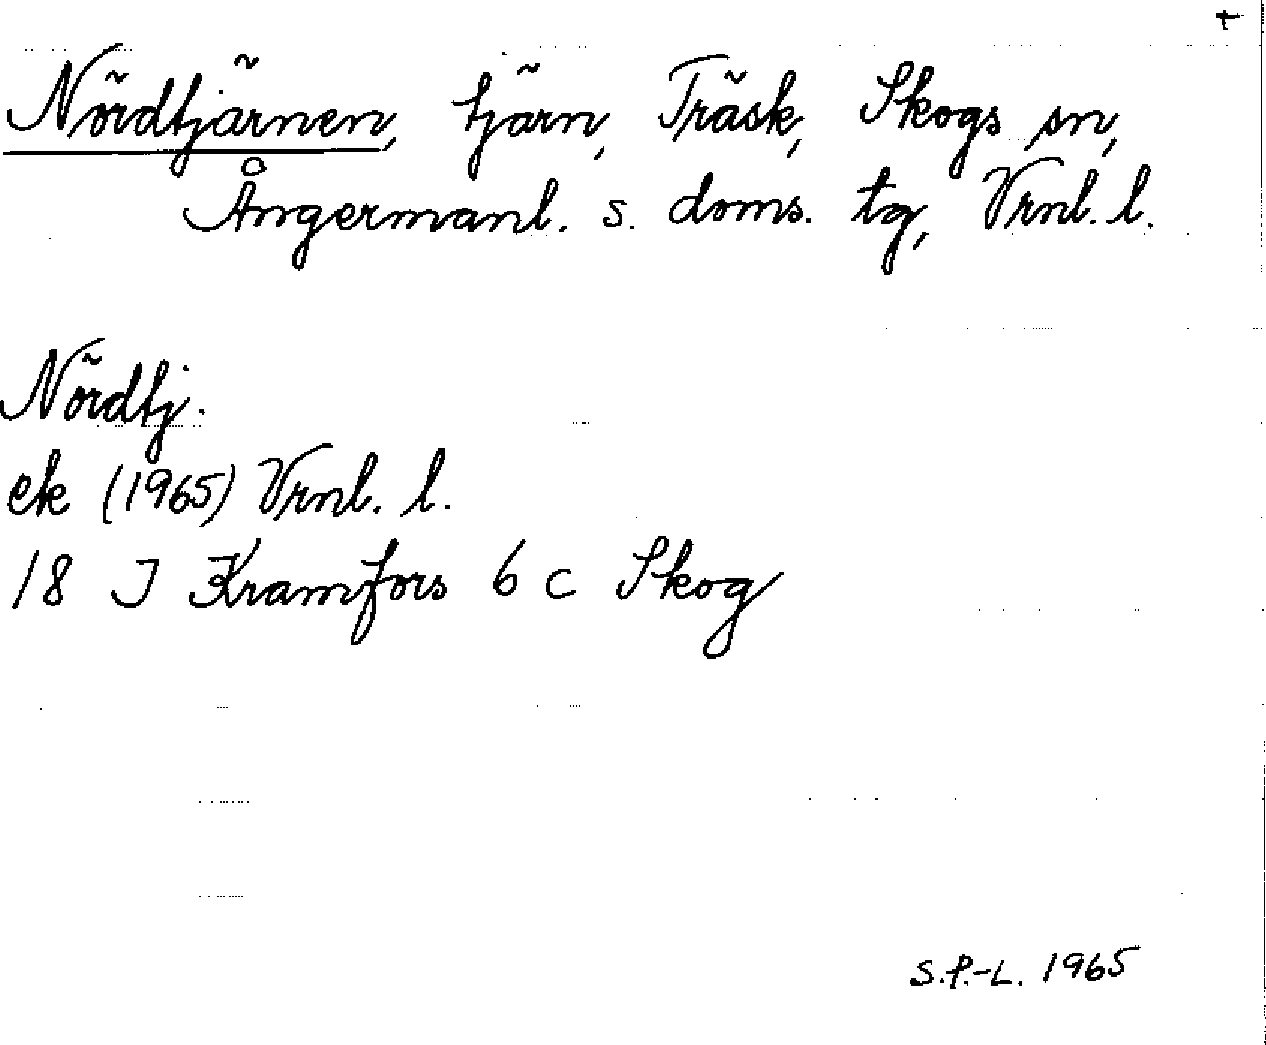 Nördtjärnen, tjärn, Träsk, Skogs sn,
Ångermanl. s. doms. tg, Vrnl. l.
Nördtj.
ek (1965) Vrnl. l.
18 J Kramfors 6 c Skog
S.P.-L. 1965